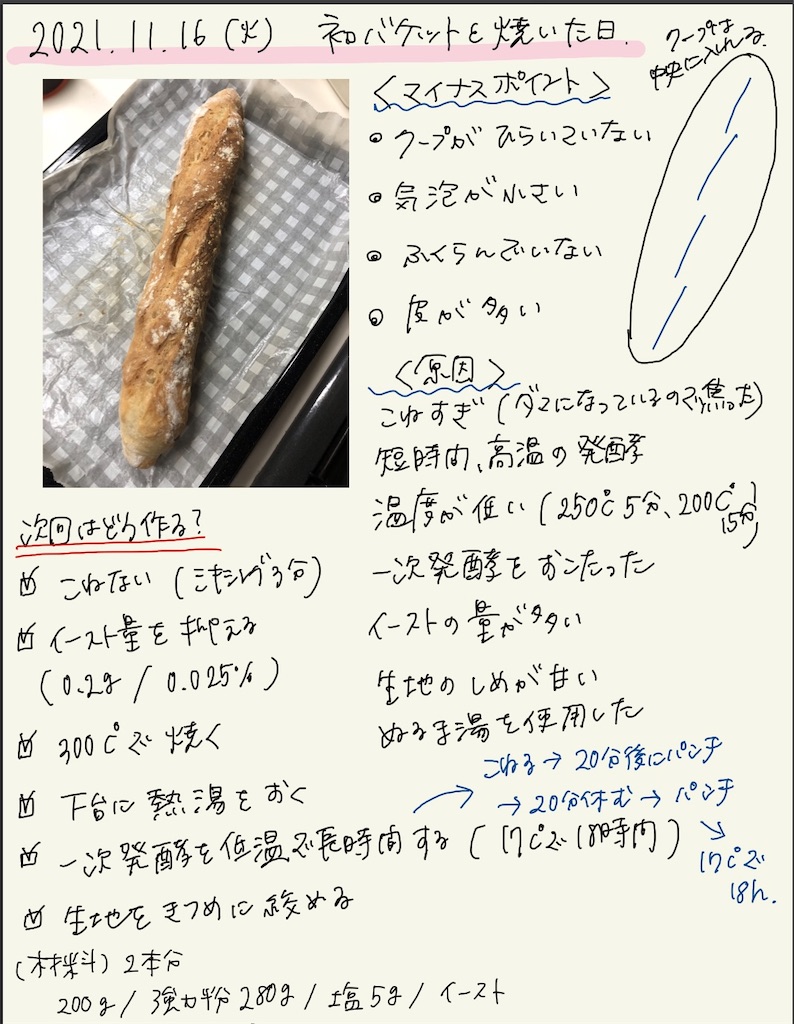 2021.11.16(火) 初バケットを焼いた日.
クープは
中央に入れる.
<マイナスポイント>
クープがひらいていない
気泡が小さい
ふくらんでいない
皮が多い
<原因>
こねすぎ(ダマになっているので焦った)
短時間、高温の発酵
温度が低い(250℃5分、200℃15分)
一次発酵をおこたった
イーストの量が多い
生地のしめが甘い
ぬるま湯を使用した
次回はどう作る?
こねない(ミキシング3分)
イースト量を抑える
(0.2g/0.025%)
300℃で焼く
下台に熱湯をおく
一次発酵を低温で長時間する(17℃で18時間)
こねる→20分後にパンチ
→20分休む→パンチ
↘
17℃で
18h.
生地をきつめに絞める
(材料)2本分
200g/強力粉280g/塩5g/イースト